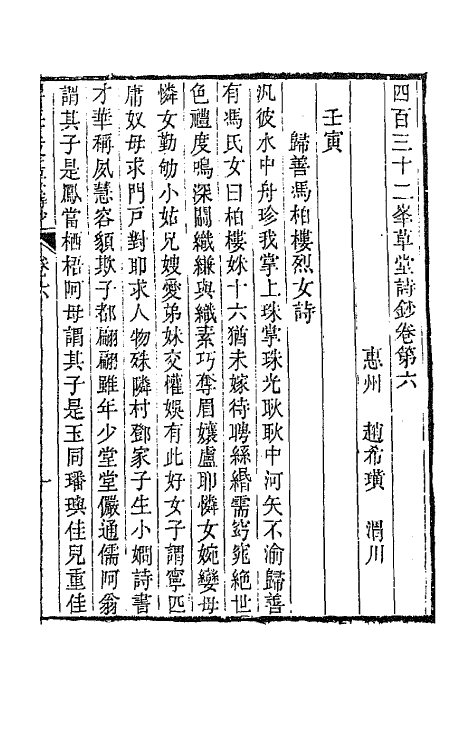 四百三十二峯草堂詩鈔卷第六
惠州　趙希璜　渭川
壬寅
歸善馮柏樓烈女詩
汎彼水中舟珍我掌上珠掌珠光耿耿中河矢不渝歸善
有馮氏女曰柏樓姝十六猶未嫁待聘絲緡需窈窕絕世
色禮度鳴深閨織縑與織素巧奪眉孃盧耶憐女婉孌母
憐女勤劬小姑兄嫂愛弟妹交權娛有此好女子謂寧匹
庸奴母求門戸對耶求人物殊隣村鄧家子生小嫺詩書
才華稱夙慧容貌欺子都翩翩雖年少堂堂儼通儒阿翁
謂其子是鳳當栖梧阿母謂其子是玉同璠璵佳兒重佳
卷六
一